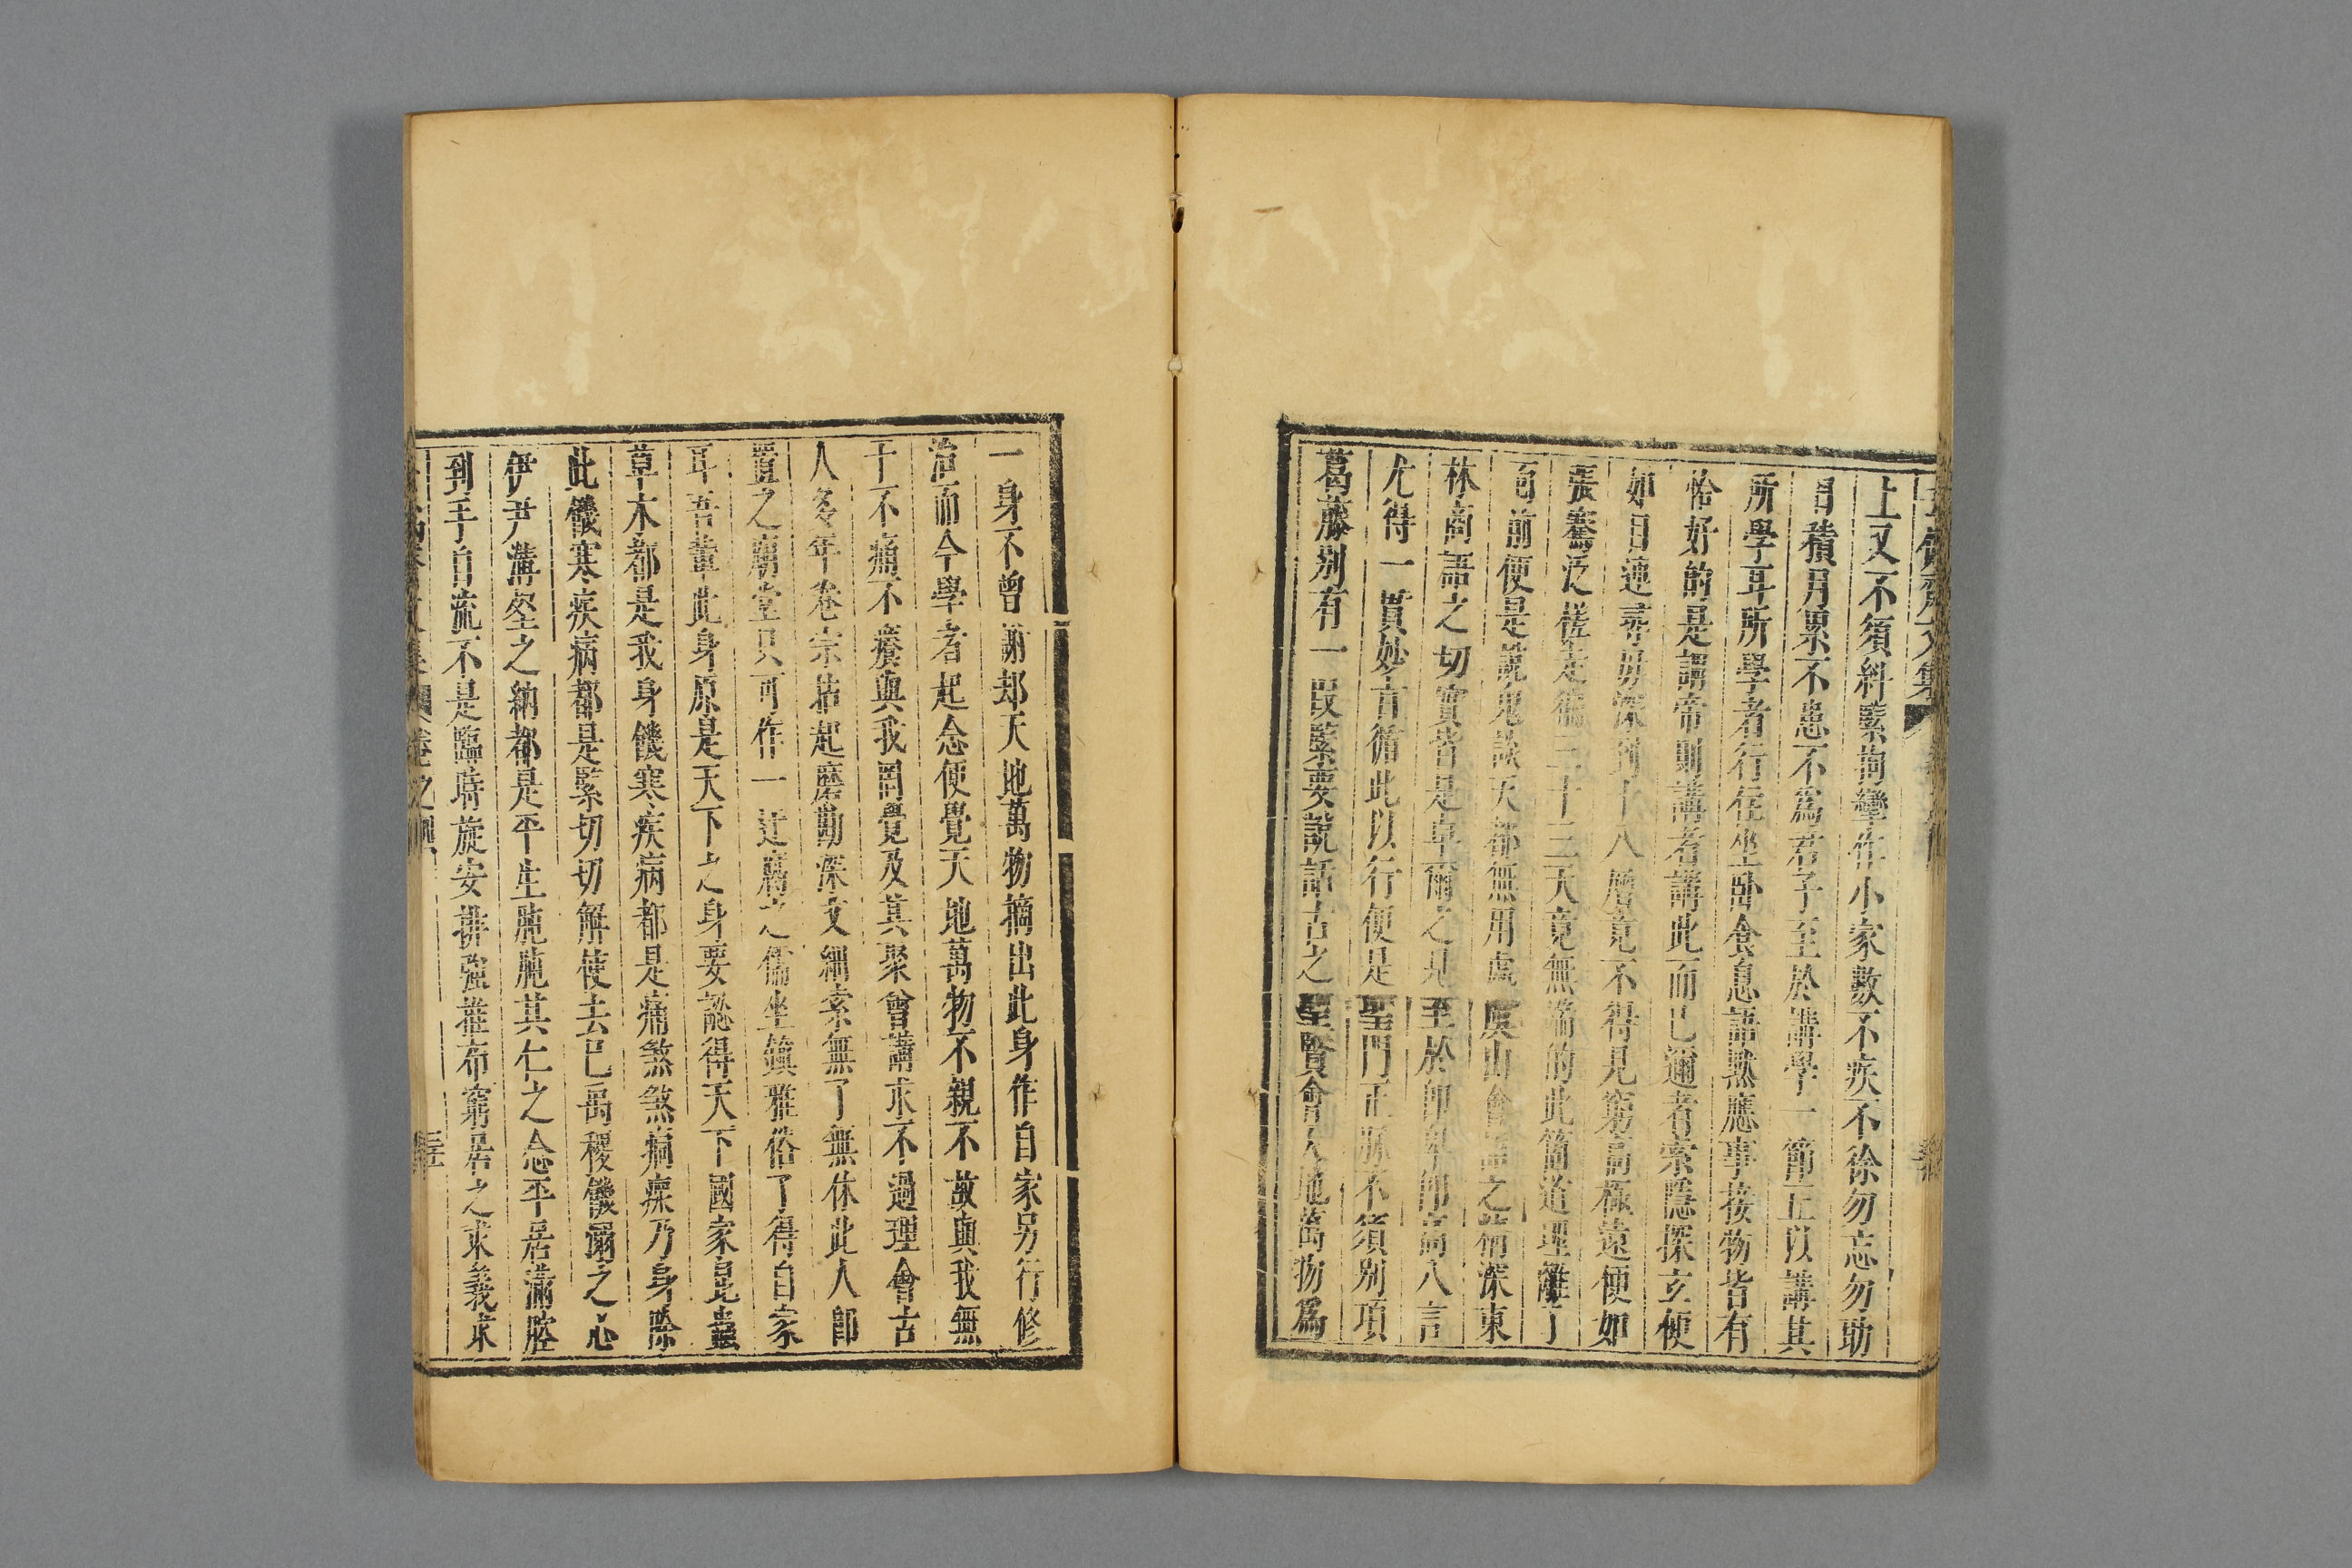 去偽齋文集
上又不須糾緊拘攣作小家數不疾不徐勿忘勿助
日積月累不患不為君子至於講學一節正以講其
所學耳所學者行住坐臥食息語默應事接物皆有
恰好的是謂帝則講者講此而已邇者索隱探玄便
如目連尋母深到十八層竟不得見窮高極遠便如
張騫泛槎走徧三十三天竟無滯的此箇道理離了
面前便是說鬼談天都無用處虞山會語之精深東
林商語之切實皆是卓爾之見至於即卑即高八言
尤得一貫妙言循此以行便是聖門正脈不須別項
葛藤別有一段緊要說話古之聖賢會天地萬物為
一身不曾謝却天地萬物摘出此身作自家另行修
治而今學者起念便覺天地萬物不親不故與我無
干不痛不癢與我罔覺及其聚會講求不過理會古
人多年卷宗拈起磨勘深文細索無了無休此人即
置之廟堂只可作一迂腐之儒坐鎮雅俗了得自家
耳吾輩此身原是天下之身要認得天下國家昆蟲
草木都是我身饑寒疾病都是痛煞煞痌瘝乃身除
此饑寒疾病都是緊切切解使去已禹稷饑溺之心
伊尹溝壑之納都是平生肫肫其仁之念平居滿腔
到手自流不是臨時旋安排強推布窮居之求義求
卷之四